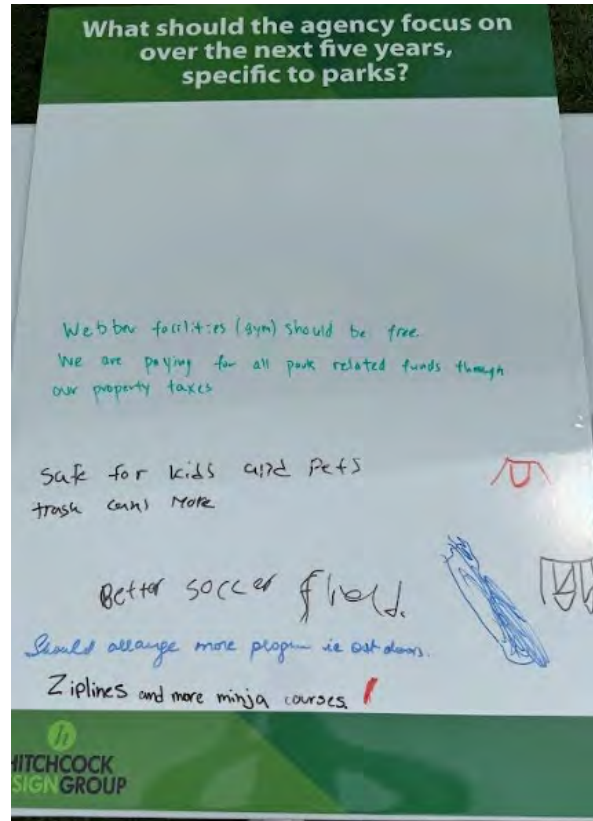 What should the agency focus on
over the next five years,
specific to parks?
Webber facilities (gym) should be free.
We are paying for all park related funds through
our property taxes
Safe for kids and Pets
trash cans More
Better soccer field.
Should arrange more program ie out doors.
Ziplines and more minja courses.
HITCHCOCK
SIGN GROUP